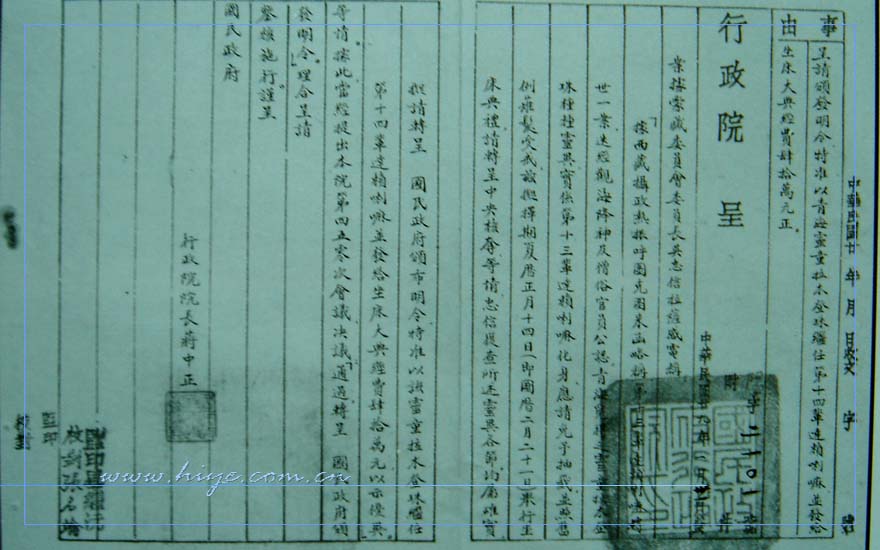 事由
呈請頒發明令特准以青海靈童拉木登珠繼任第十四輩達賴喇嘛並發給
坐床大典經費肆拾萬元正。
行政院 呈
業據蒙藏委員會委員長吳忠信拉薩感電稱
「據西藏攝政熱振呼圖克圖來函略稱第十三輩達賴喇嘛
世一案迭經觀海降神及僧俗官員公認青海靈童拉木登
珠種種靈異實係第十三輩達賴喇嘛化身應請免予抽籤並照舊
例薙髮受戒茲擬擇期夏曆正月十四日(即國曆二月二十一日)舉行坐
床典禮請轉呈中央核奪等情忠信復查所述靈異各節均屬確實
擬請轉呈 國民政府頒布明令特准以該靈童拉木登珠繼任
第十四輩達賴喇嘛並發給坐床大典經費肆拾萬元以示優異」
等情。據此當經提出本院第四五零次會議決議「通過轉呈 國民政府頒
發明令」理合呈請
鑒核施行謹呈
國民政府
行政院院長蔣中正
中華民國廿 年 月 日發 字 號
字 二一〇一 號
監印
校對
www.hiye.com.cn